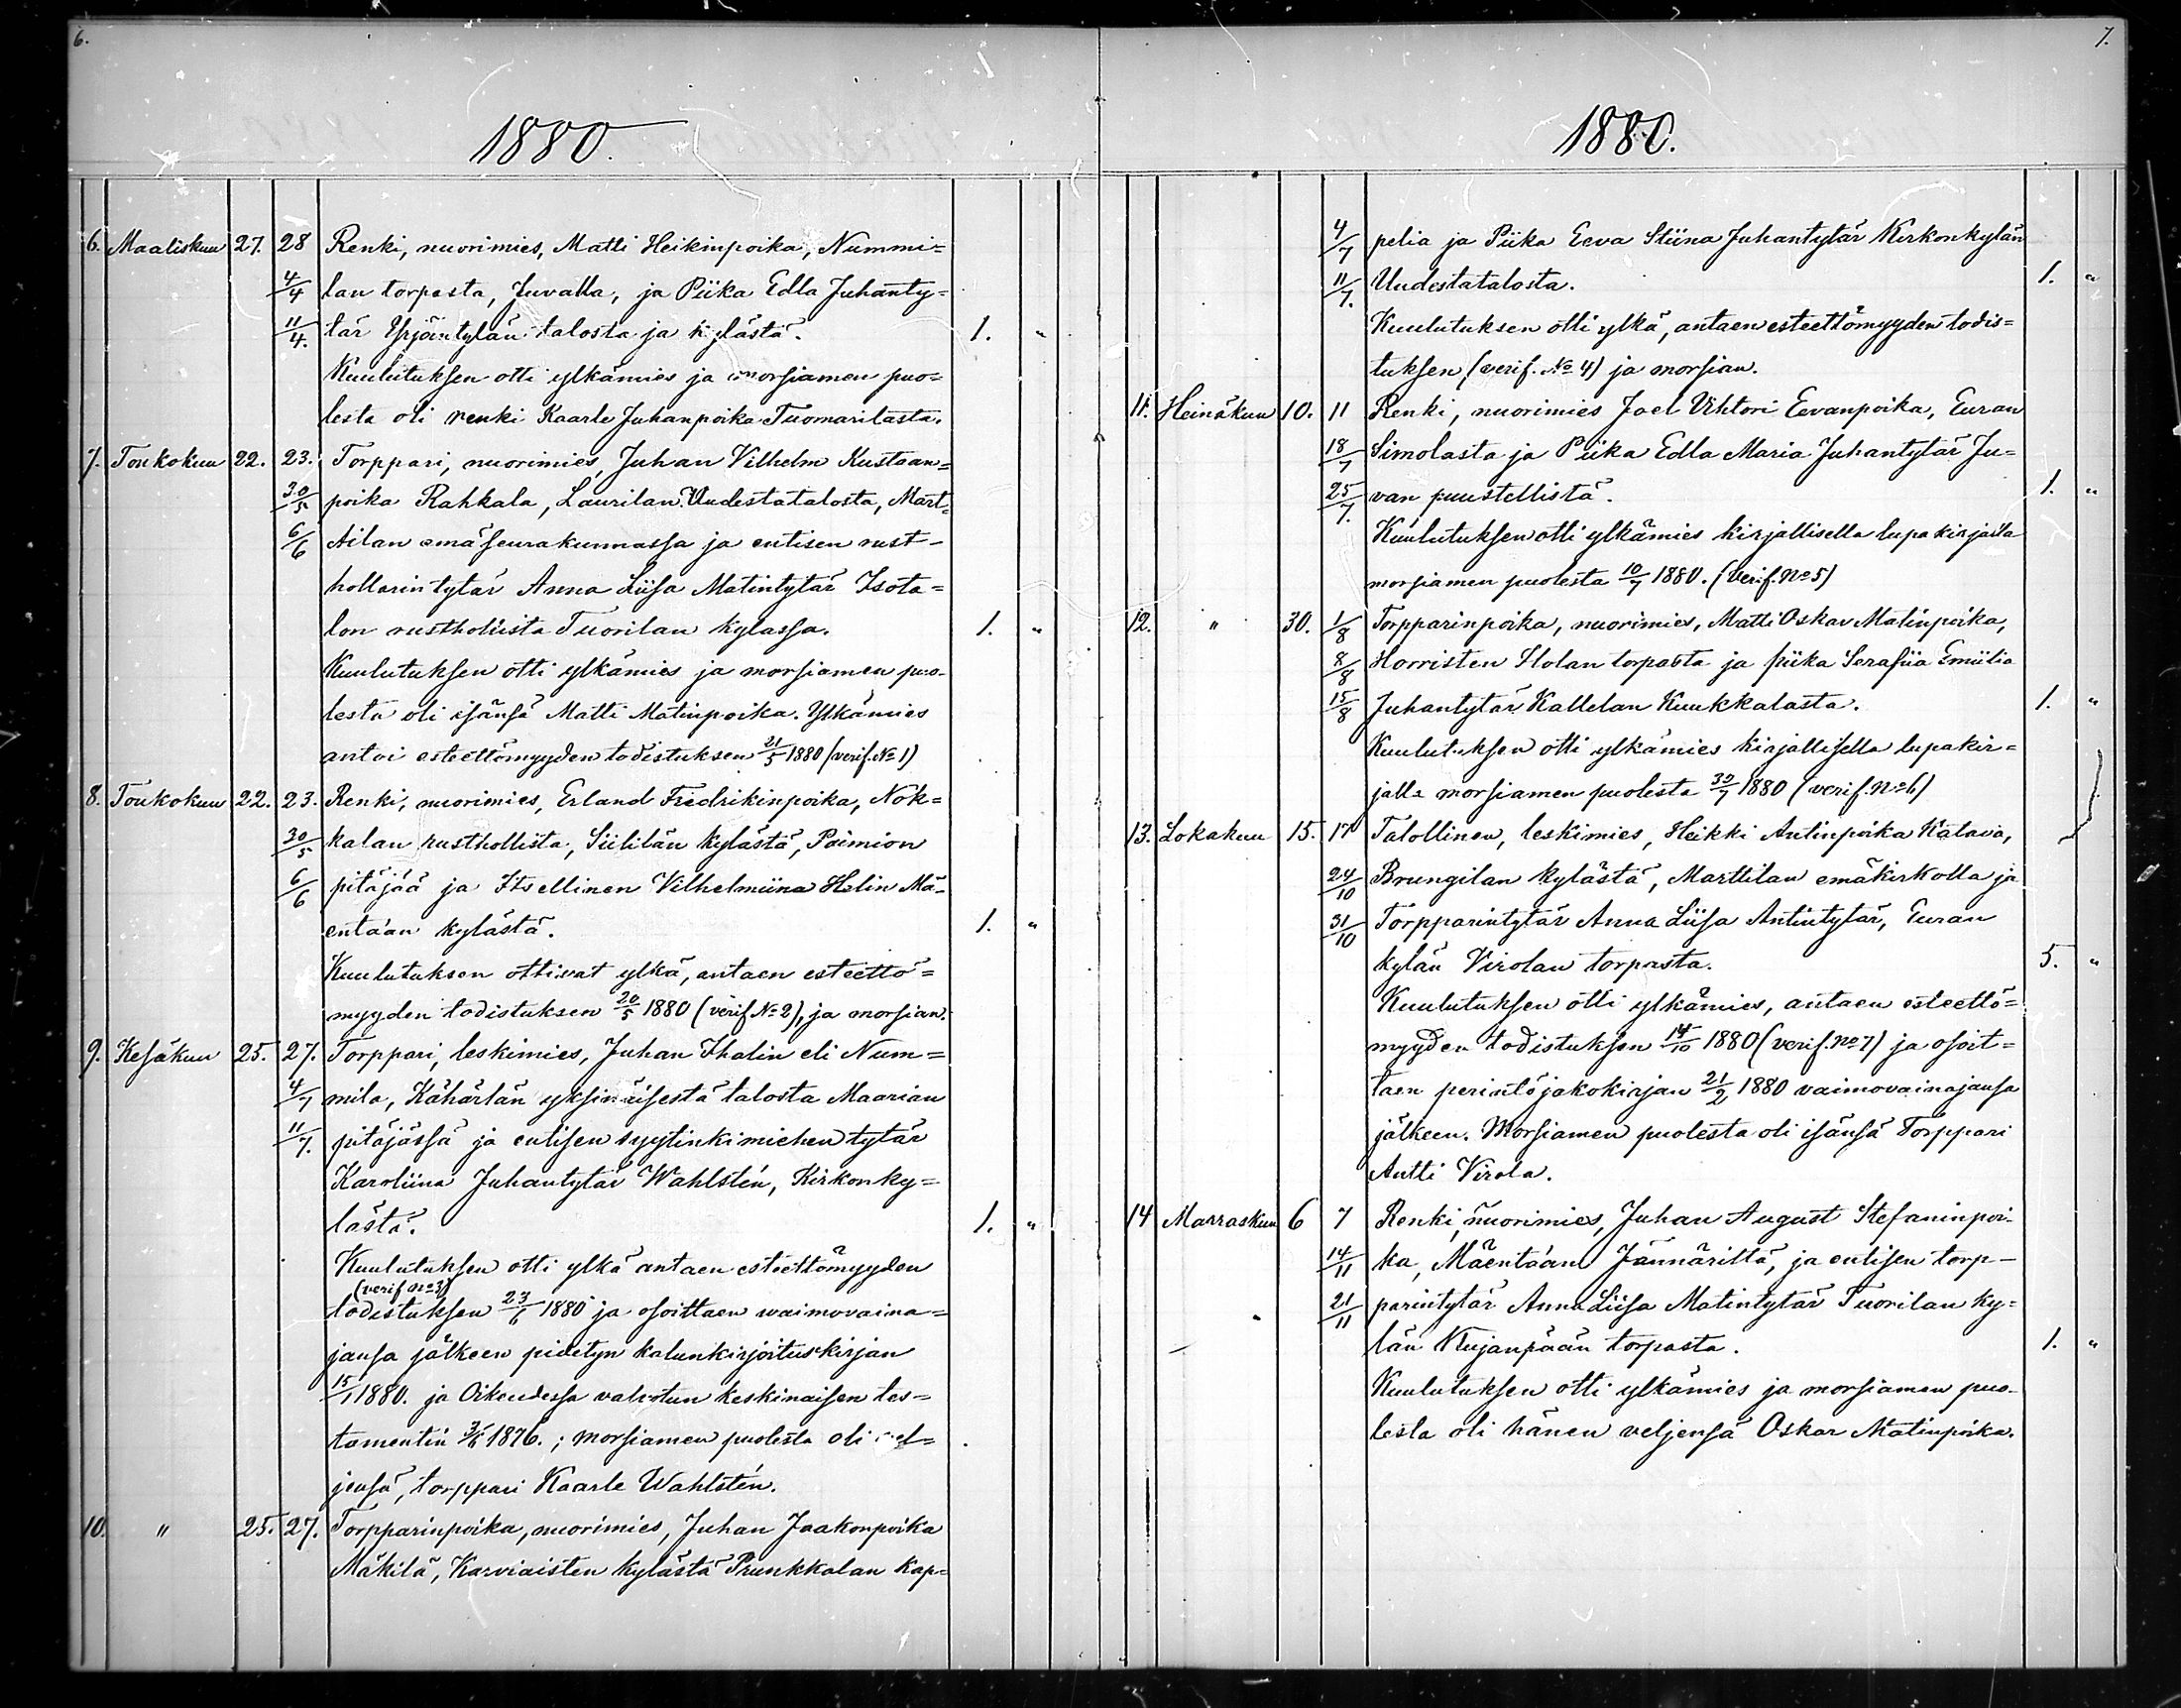 6.
1880.
6. Maaliskuu 27. 28 Renki, nuorimies, Matti Heikinpoika, Nummi=
4/4 lan torpasta, Juvalla, ja Piika Edla Juhanty=
11/4. tär Yrjäntylän talosta ja kylästä. 1. "
Kuulutuksen otti ylkämies ja morsiamen puo=
lesta oli renki Kaarle Juhanpoika Tuomarilasta.
7. Toukokuu 22. 23. Torppari, nuorimies, Juhan Vilhelm Kustaan=
30/5 poika Rahkala, Laurilan Uudestatalosta, Mart=
6/6 tilan emäseurakunnassa ja entisen rust-
hollarintytär Anna Liisa Matintytär Isota=
lon rusthollista Tuorilan kylassa. 1. "
Kuulutuksen otti ylkämies ja morsiamen puo-
lesta oli isänsä Matti Matinpoika. Ylkämies
antoi esteettömyyden todistuksen 21/5 1880 (verif. No 1)
8. Toukokuu 22. 23. Renki, nuorimies, Erland Fredrikinpoika, Nok=
30/5 kalan rusthollista, Siililän kylästä, Paimion
6/6 pitäjää ja Itsellinen Vilhelmiina Helin Mä-
entään kylästä. 1. "
Kuulutuksen ottivat ylkä, antaen esteettö=
myyden todistuksen 20/5 1880 (verif No 2), ja morsian.
9. Kesäkuu 25. 27. Torppari, leskimies, Juhan Ihalin eli Num=
4/7 mila, Kähärlän yksinäisestä talosta Maarian
11/7. pitäjässä ja entisen syytinkimiehen tytär
Karoliina Juhantytär Wahlstén, Kirkonky=
lästä. 1. "
Kuulutuksen otti ylkä antaen esteettömyyden
(verif No 3)
todistuksen 23/6 1880 ja osoittaen vaimovaina=
jansa jälkeen pidetyn kalunkirjoituskirjan
15/1 1880. ja Oikeudessa valvotun keskinaisen tes=
tamentin 1876.; morsiamen puolesta oli vel=
jensä, torppari Kaarle Wahlstén.
10. " 25. 27. Torpparinpoika, nuorimies, Juhan Jaakonpoika
Mäkilä, Karviaisten kylästä Prunkkalan kap=
7.
1880.
4/7 pelia ja Piika Eeva Stiina Juhantytär Kirkonkylän
11/7. Uudestatalosta. 1. "
Kuulutuksen otti ylkä, antaen esteettömyyden todis=
tuksen (verif. No 4) ja morsian.
11. Heinäkuu 10. 11 Renki, nuorimies Joel Vihtori Eevanpoika, Euran
18/7 Simolasta ja Piika Edla Maria Juhantytär Ju=
25/7. van puustellistä. 1. "
Kuulutuksen otti ylkämies kirjallisella lupakirjalla
morsiamen puolesta 10/7 1880. (verif. No 5)
12. " 30. 1/8 Torpparinpoika, nuorimies, Matti Oskar Matinpoika,
8/8 Horristen Ilolan torpasta ja piika Serafiia Emiilia
15/8 Juhantytär Kallelan Kuukkalasta. 1. "
Kuulutuksen otti ylkämies kirjallisella lupakir=
jalla morsiamen puolesta 30/7 1880 (verif. No 6)
13. Lokakuu 15. 17 Talollinen, leskimies, Heikki Antinpoika Katava,
24/10 Brungilan kylästä, Marttilan emäkirkolla ja
31/10 Torpparintytär Anna Liisa Antintytär, Euran
kylän Virolan torpasta. 5. "
Kuulutuksen otti ylkämies, antaen esteettö=
myyden todistuksen 14/10 1880 (verif. No 7) ja osoit=
taen perintöjakokirjan 21/2 1880 vaimovainajansa
jälkeen. Morsiamen puolesta oli isänsä Torppari
Antti Virola.
14 Marraskuu 6 7 Renki, nuorimies, Juhan August Stefaninpoi-
14/11 ka, Mäentään Jännäriltä, ja entisen torp-
21/11 parintytär Anna Liisa Matintytär Tuorilan ky=
län Kujanpään torpasta. 1. "
Kuulutuksen otti ylkämies ja morsiamen puo-
lesta oli hänen veljensä Oskar Matinpoika.